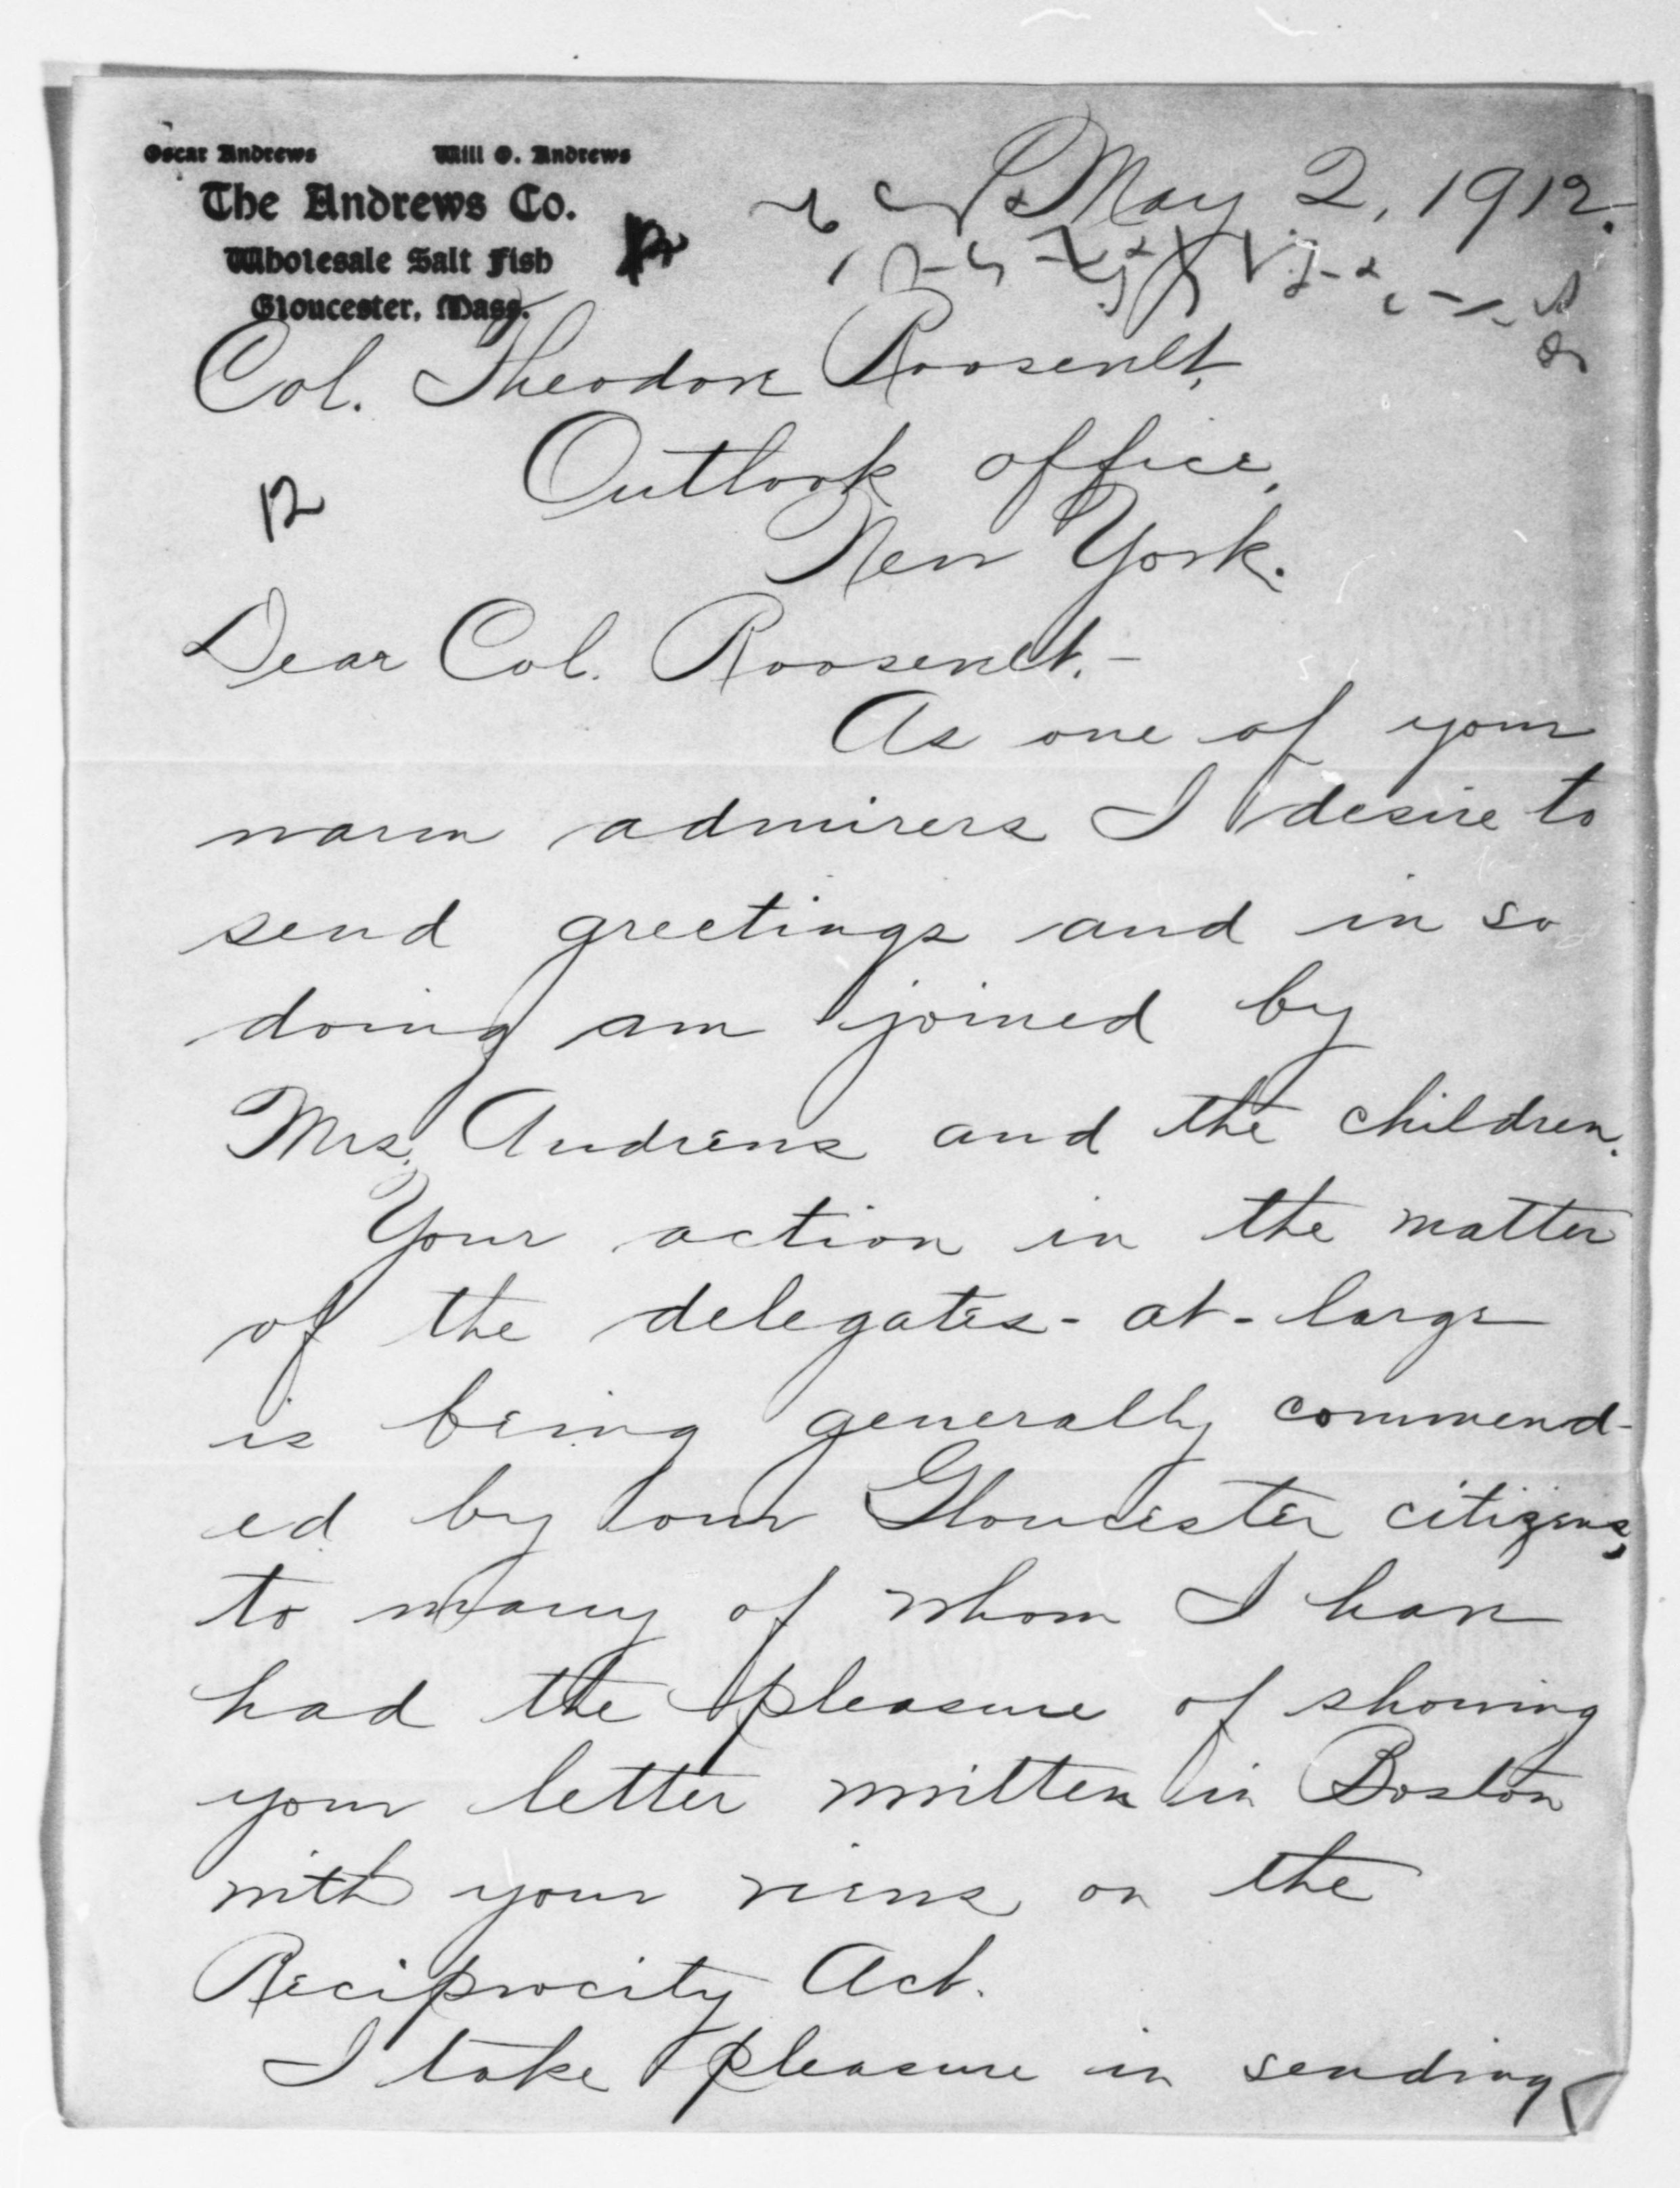 Oscar Andrews Will O. Andrews
The Andrews Co.
Wholesale Salt Fish
Gloucester, Mass.
May 2, 1912.
Col. Theodore Roosevelt,
Outlook office,
New York.
12
Dear Col. Roosevelt.-
As one of your
warm admirers I desire to
send greetings and in so
doing am joined by
Mrs. Andrews and the children.
Your action in the matter
of the delegates-at-large
is being generally commend-
ed by our Gloucester citizens,
to many of whom I have
had the pleasure of showing
your letter written in Boston
with your views on the
Reciprocity Act.
I take pleasure in sending